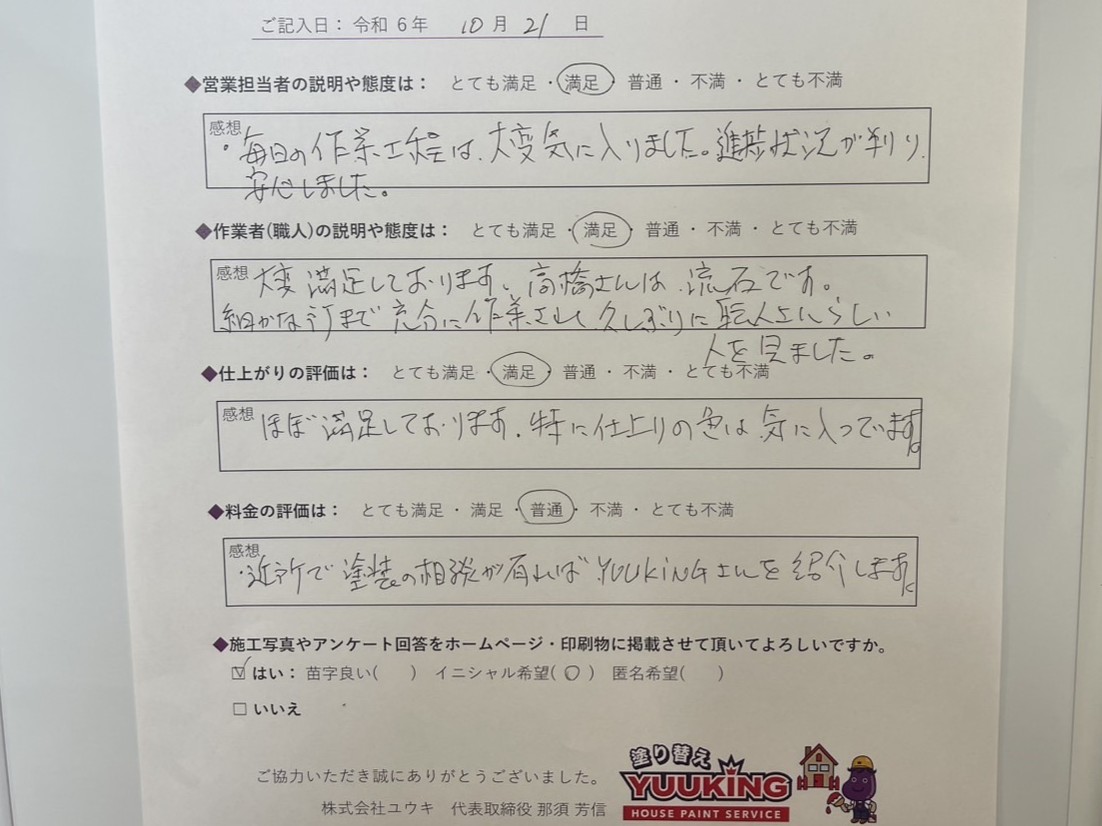 ご記入日：令和 6年 10月 21日
◆営業担当者の説明や態度は： とても満足・満足・普通・不満・とても不満
感想
・毎日の作業工程は、大変気に入りました。進捗状況が判り、
安心しました。
◆作業者(職人)の説明や態度は： とても満足・満足・普通・不満・とても不満
感想 大変満足しております。高橋さんは、流石です。
細かな所まで充分に作業されて、久しぶりに職人さんらしい
人を見ました。
◆仕上がりの評価は： とても満足・満足・普通・不満・とても不満
感想 ほぼ満足しております。特に仕上りの色は気に入っています。
◆料金の評価は： とても満足・満足・普通・不満・とても不満
感想
・近所で塗装の相談が有ればYUUKINGさんを紹介します。
◆施工写真やアンケート回答をホームページ・印刷物に掲載させて頂いてよろしいですか。
☑ はい：苗字良い( ) イニシャル希望(○) 匿名希望( )
□ いいえ
ご協力いただき誠にありがとうございました。
株式会社ユウキ 代表取締役 那須 芳信
塗り替え
YUUKING
HOUSE PAINT SERVICE